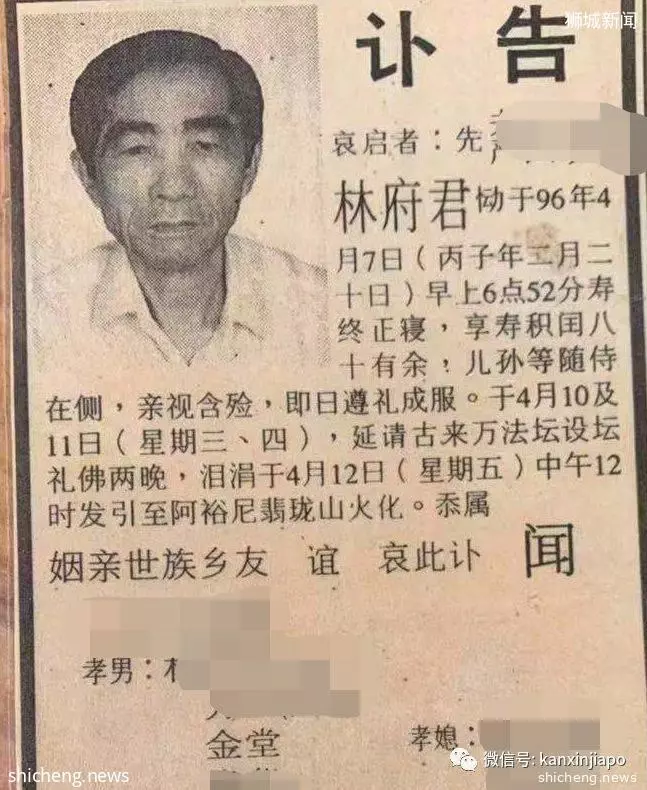 狮城新闻
讣告
哀启者：先
林府君恸于96年4
月7日（丙子年二月二
十日）早上6点52分寿
终正寝，享寿积闰八
十有余；儿孙等随侍
在侧，亲视含殓，即日遵礼成服。于4月10及
11日（星期三、四），延请古来万法坛设坛
礼佛两晚，泪涓于4月12日（星期五）中午12
时发引至阿裕尼翡珑山火化。忝属
姻亲世族乡友 谊 哀此讣 闻
孝男：
金堂
孝媳：
微信号: kanxinjiapo
shicheng.news
shicheng.news